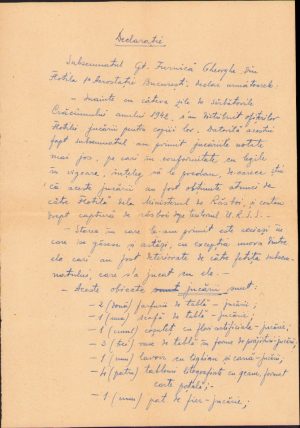 Declarație
Subsemnatul Gt. Zurnică Gheorghe din
Flotila 1ª Aerostație București, declar următoarele:
- Înainte cu câteva zile de sărbătorile
Crăciunului anului 1942, s'au distribuit ofițerilor
Flotilei jucării pentru copiii lor. Datorită acestui
fapt subsemnatul am primit jucăriile notate
mai jos, pe cari în conformitate cu legile
în vigoare, înțeleg să le predau, deoarece știu
că aceste jucării au fost obținute atunci de
către Flotilă dela Ministerul de Război, și erau
drept captură de război depe teritoriul U.R.S.S. -
- Starea în care le-am primit este aceiași în
care se găsesc și astăzi, cu excepția unora dintre
ele cari au fost deteriorate de către fetița subsem-
natului, care s'a jucat cu ele. -
- Aceste obiecte jucării sunt:
- 2 (două) farfurii de tablă - jucării;
- 1 (una) ceașcă de tablă - jucărie;
- 1 (unu) coșuleț cu flori artificiale - jucărie;
- 3 (trei) vase de tablă în forme de prăjituri - jucării;
- 1 (unu) lavoar cu lighian și cană - jucării;
- 4 (patru) tablouri litografiate cu geam, format
carte poștală; -
- 1 (unu) pat de fier - jucărie;